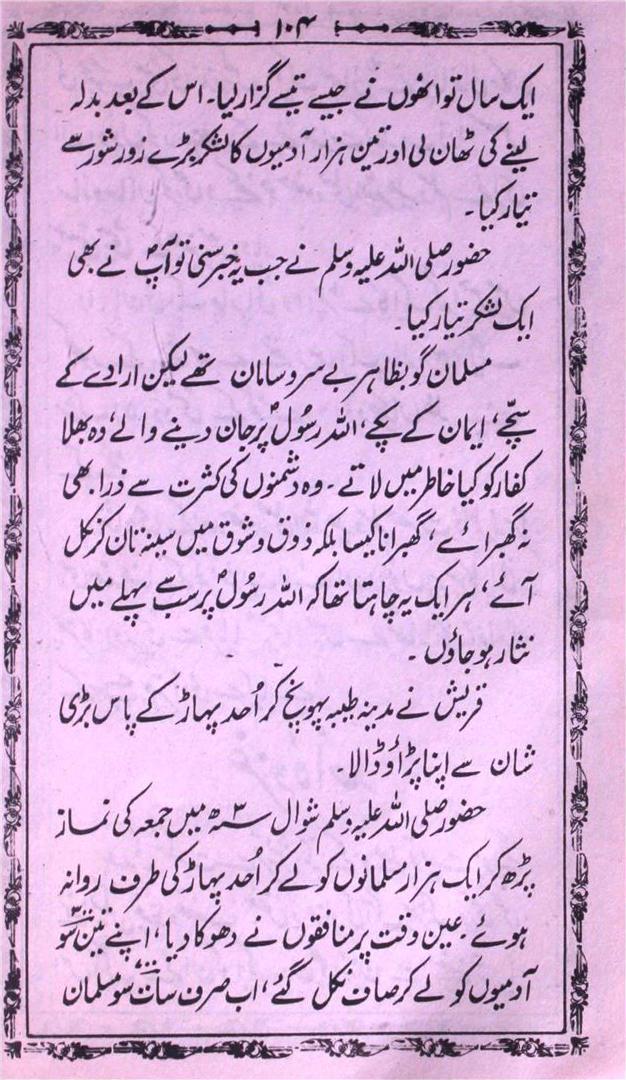 ۱۰۴
ایک سال تو انھوں نے جیسے تیسے گزار لیا۔ اس کے بعد بدلہ
لینے کی ٹھان لی اور تین ہزار آدمیوں کا لشکر بڑے زور شور سے
تیار کیا۔
حضور صلی اللہ علیہ وسلم نے جب یہ خبر سنی تو آپؐ نے بھی
ایک لشکر تیار کیا۔
مسلمان گو بظاہر بے سروسامان تھے لیکن ارادے کے
سچّے، ایمان کے پکے، اللہ رسُولؐ پر جان دینے والے، وہ بھلا
کفار کو کیا خاطر میں لاتے۔ وہ دشمنوں کی کثرت سے ذرا بھی
نہ گھبرائے، گھبرانا کیسا بلکہ ذوق و شوق میں سینہ تان کر نکل
آئے، ہر ایک یہ چاہتا تھا کہ اللہ رسُولؐ پر سب سے پہلے میں
نثار ہو جاؤں۔
قریش نے مدینہ طیبہ پہونچ کر اُحد پہاڑ کے پاس بڑی
شان سے اپنا پڑاؤ ڈالا۔
حضور صلی اللہ علیہ وسلم شوال ۳ھ میں جمعہ کی نماز
پڑھ کر ایک ہزار مسلمانوں کو لے کر اُحد پہاڑ کی طرف روانہ
ہوئے۔ عین وقت پر منافقوں نے دھوکا دیا، اپنے تین سو
آدمیوں کو لے کر صاف نکل گئے، اب صرف سات سو مسلمان